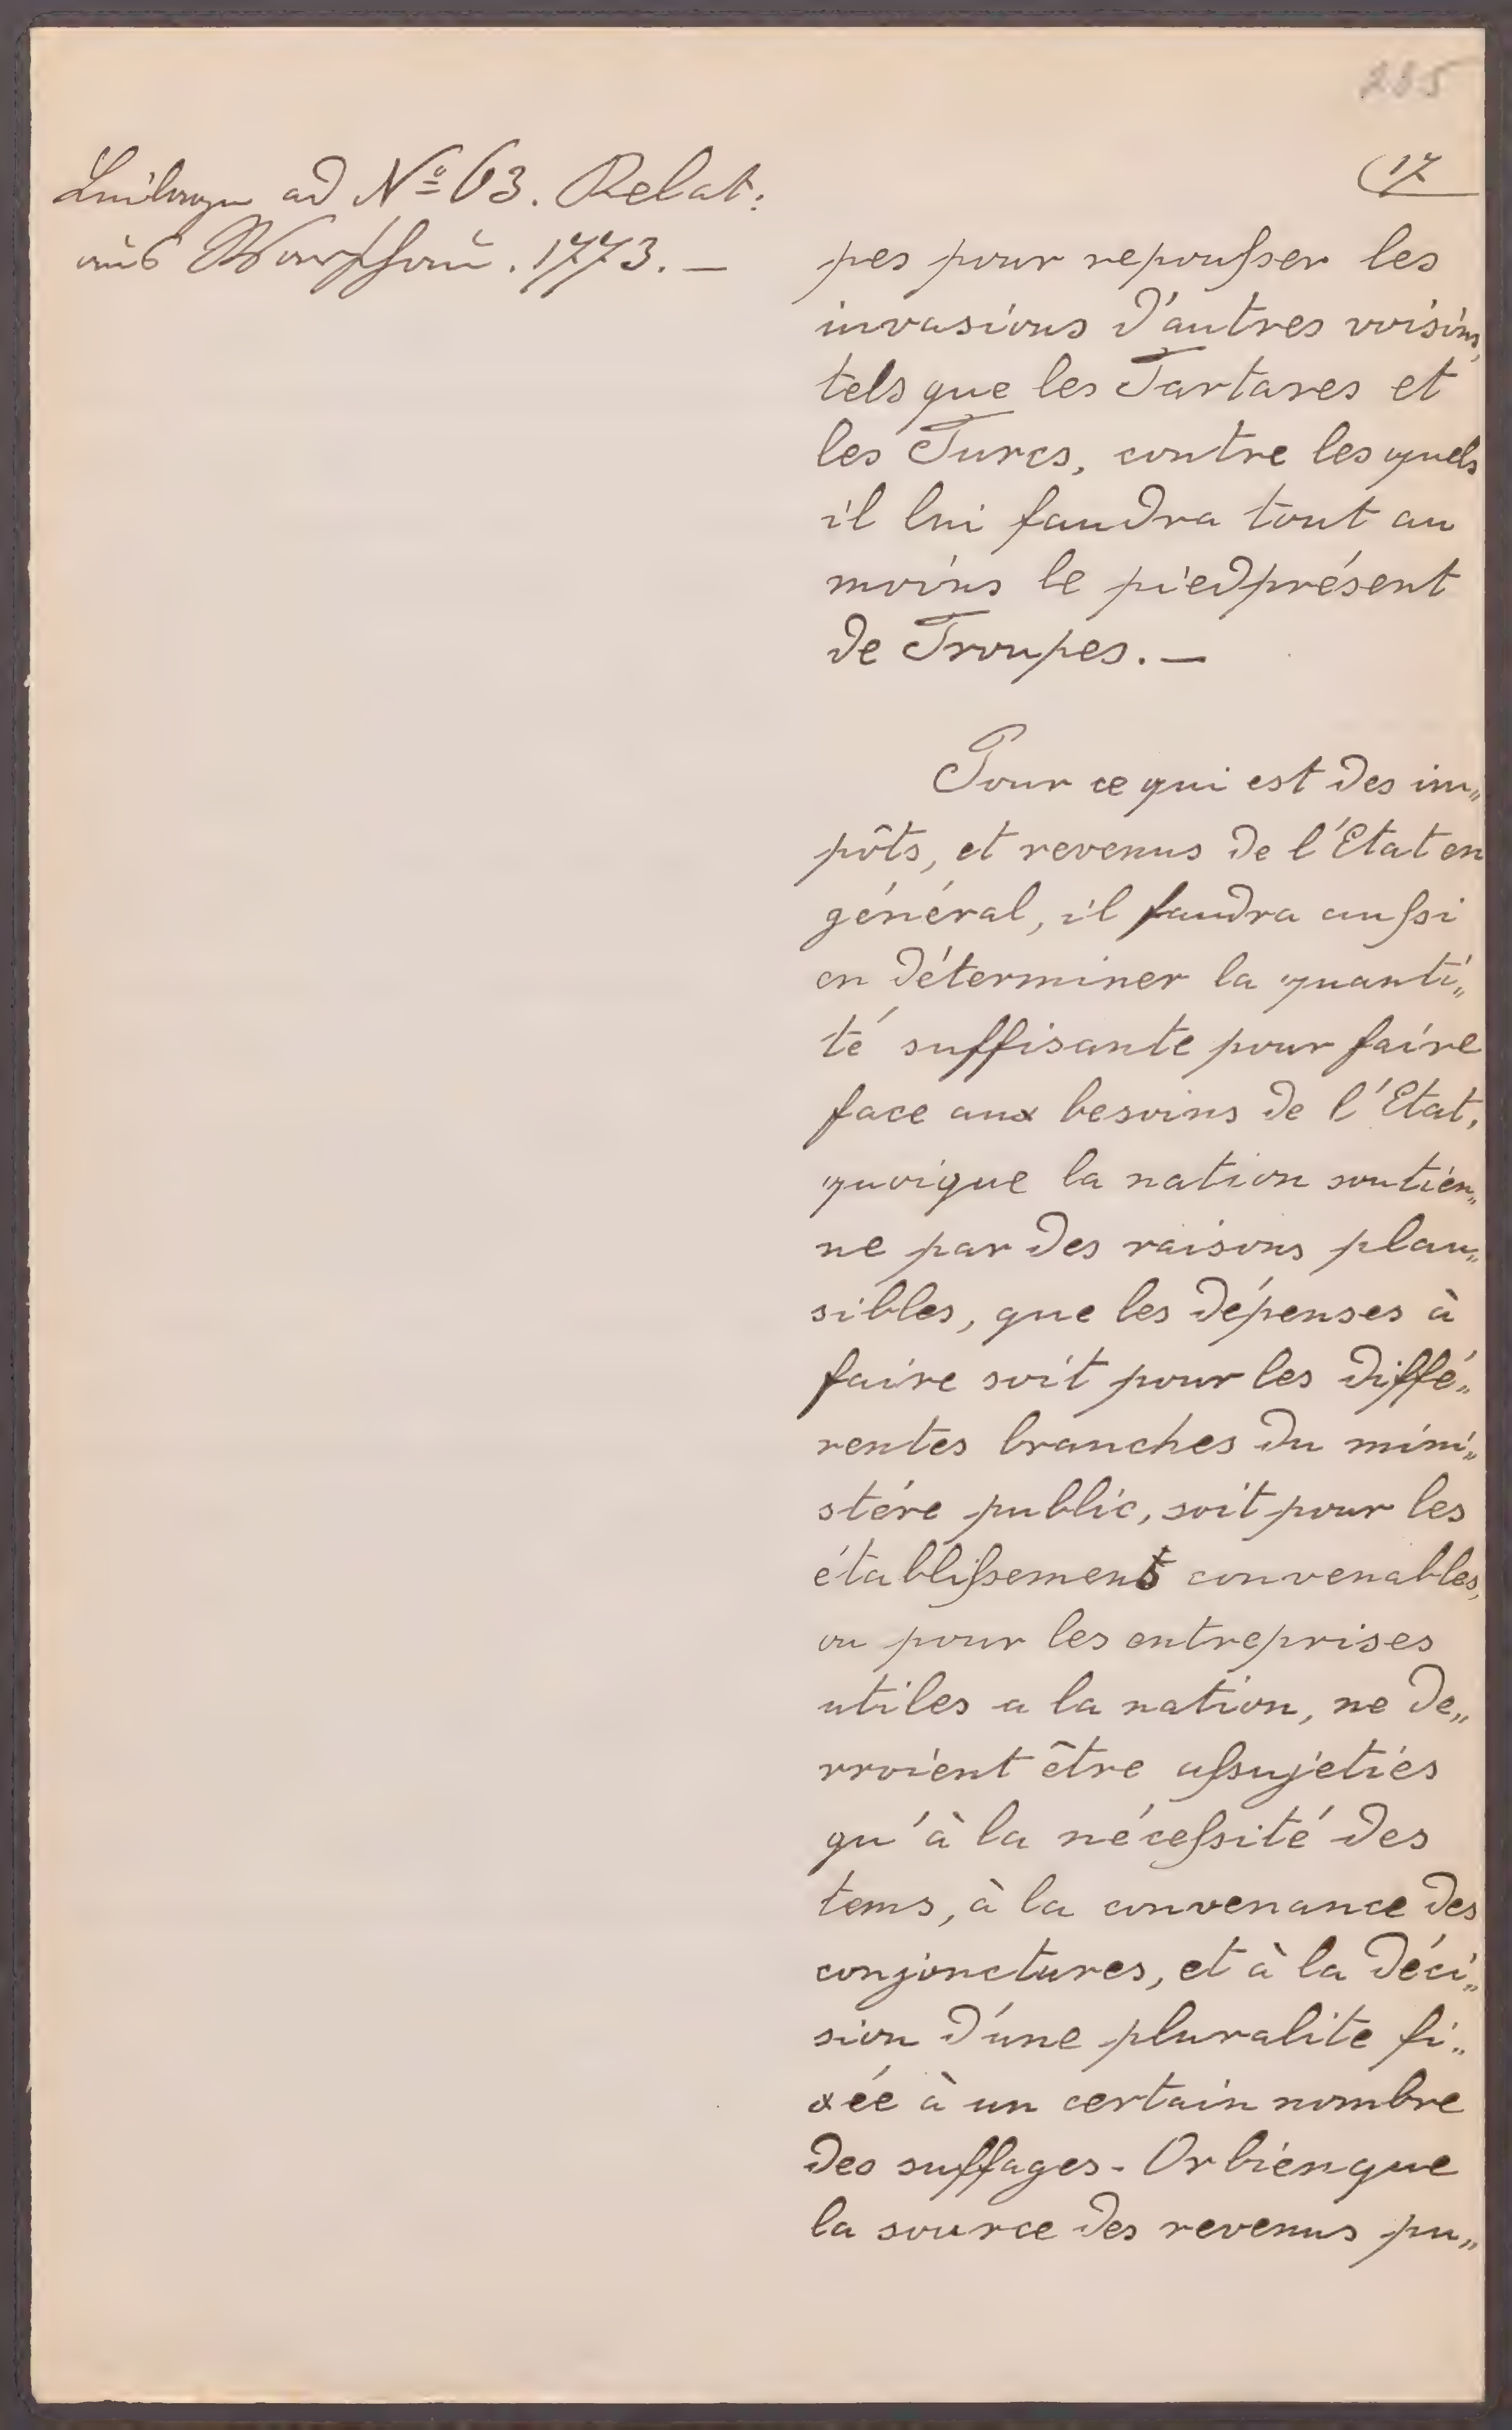 285
17
Beilage ad Nº 63. Relat:
aus Warschau. 1773. —
pes pour repouſser les
invasions d'autres voisins,
tels que les Tartares et
les Turcs, contre les quels
il lui faudra tout au
moins le pied présent
de Troupes. —
Pour ce qui est des im„
pôts, et revenus de l'Etat en
général, il faudra auſsi
en déterminer la quanti„
té suffisante pour faire
face aux besoins de l'Etat,
quoique la nation soutien„
ne par des raisons plau„
sibles, que les dépenses à
faire soit pour les diffé„
rentes branches du mini„
stére public, soit pour les
établiſsements convenables,
ou pour les entreprises
utiles a la nation, ne de„
vroient être aſsujeties
qu'à la néceſsité des
tems, à la convenance des
conjonctures, et à la déci„
sion d'une pluralite fi„
xée à un certain nombre
des suffages. Or bien que
la source des revenus pu„